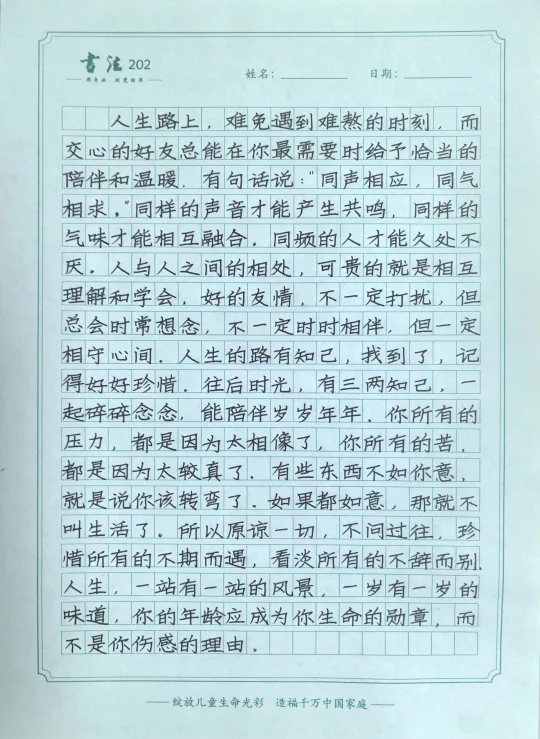 书法 202
用专业 放更娃异
姓名：________ 日期：________
人生路上，难免遇到难熬的时刻，而
交心的好友总能在你最需要时给予恰当的
陪伴和温暖．有句话说："同声相应，同气
相求．"同样的声音才能产生共鸣，同样的
气味才能相互融合．同频的人才能久处不
厌．人与人之间的相处，可贵的就是相互
理解和学会，好的友情，不一定打扰，但
总会时常想念，不一定时时相伴，但一定
相守心间．人生的路有知己，找到了，记
得好好珍惜．往后时光，有三两知己，一
起碎碎念念，能陪伴岁岁年年．你所有的
压力，都是因为太相像了，你所有的苦，
都是因为太较真了．有些东西不如你意，
就是说你该转弯了．如果都如意，那就不
叫生活了．所以原谅一切，不问过往，珍
惜所有的不期而遇，看淡所有的不辞而别．
人生，一站有一站的风景，一岁有一岁的
味道，你的年龄应成为你生命的勋章，而
不是你伤感的理由．
绽放儿童生命光彩 造福千万中国家庭